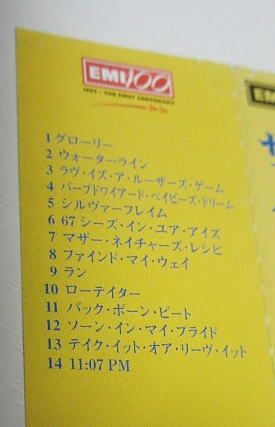 EMI 100
1997 - THE FIRST CENTENARY
1 グローリー
2 ウォーターライン
3 ラヴ・イズ・ア・ルーザーズ・ゲーム
4 バーブドワイアード・ベイビーズ・ドリーム
5 シルヴァーフレイム
6 67 シーズ・イン・ユア・アイズ
7 マザー・ネイチャーズ・レシピ
8 ファインド・マイ・ウェイ
9 ラン
10 ローテイター
11 バック・ボーン・ビート
12 ソーン・イン・マイ・プライド
13 テイク・イット・オア・リーヴ・イット
14 11:07 PM